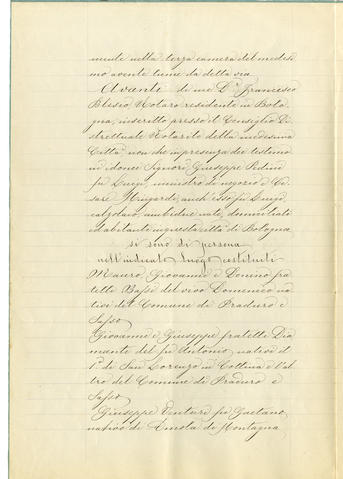 mente nella terza camera del medesi
mo avente lume da della via
Avanti di me Dr. Francesco
Blesio, Notaro residente in Bolo
gna, inscritto presso il Consiglio Di
strettuale Notarile della medesima
Città non che in presenza dei testimo
ni idonei Signori Giuseppe Pedini
fu Luigi, ministro di negozio e Ce
sare anch'esso fu Luigi
calzolaio, ambidue nati, domiciliati
ed abitanti in questa città di Bologna
si sono di persona
nell'indicato luogo costituiti
Mauro, Giovanni e Donino fra
telli Bassi del vivo Domenico na
tivi del Comune di Praduro e
Sasso
Giovanni e Giuseppe fratelli Dia
mante del fu Antonio, nativo il
1º di San Lorenzo in Collina e l'al
tro del Comune di Praduro e
Sasso
Giuseppe Venturi fu Gaetano
nativo di Amola di Montagna